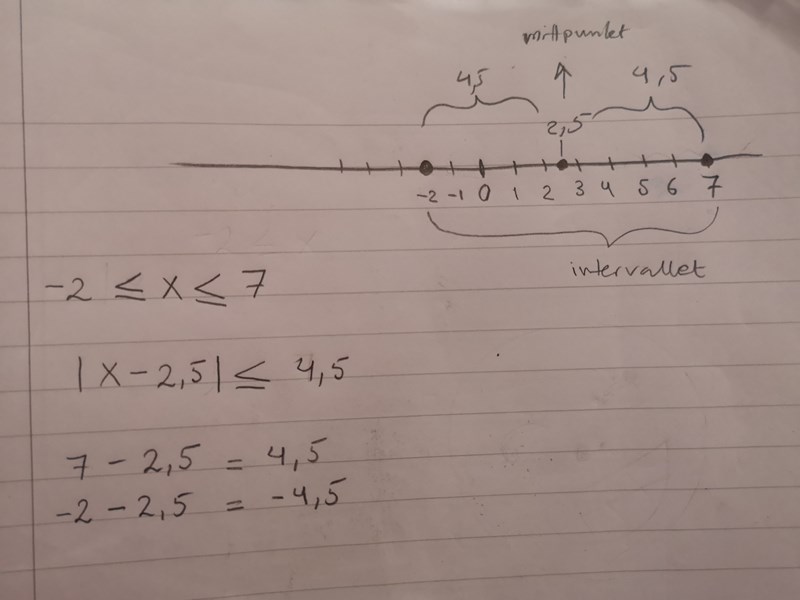 mittpunkt
4,5 4,5
2,5
-2 -1 0 1 2 3 4 5 6 7
intervallet
-2 ≤ x ≤ 7
|x-2,5| ≤ 4,5
7 - 2,5 = 4,5
-2 - 2,5 = -4,5